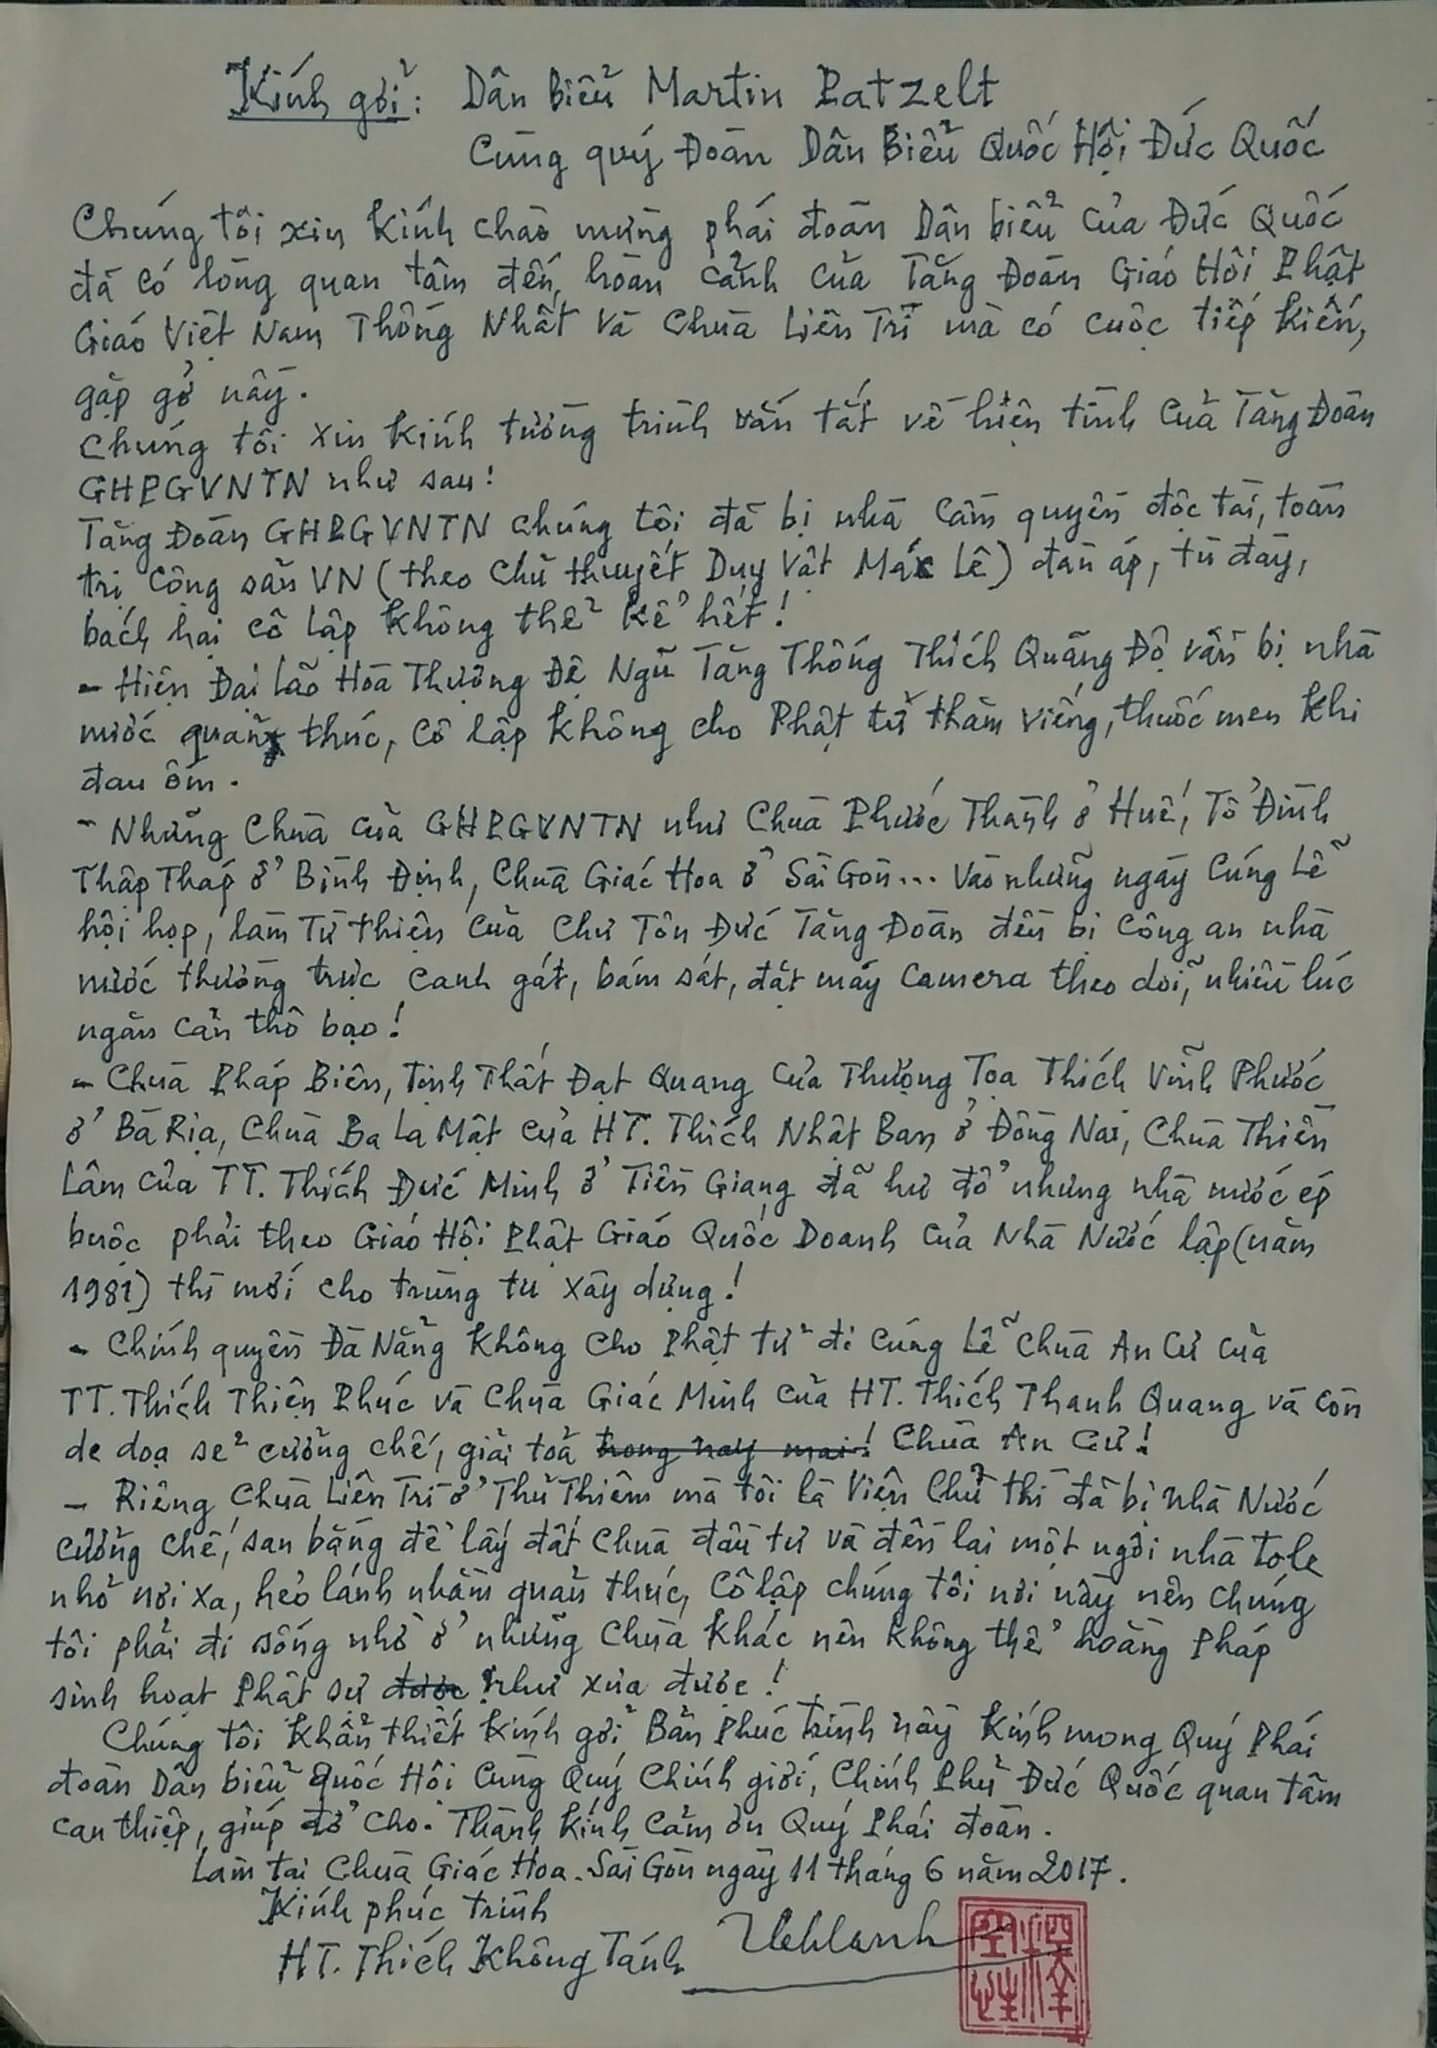 Kính gởi: Dân Biểu Martin Patzelt
Cùng quý Đoàn Dân Biểu Quốc Hội Đức Quốc
Chúng tôi xin kính chào mừng phái đoàn Dân biểu của Đức Quốc
đã có lòng quan tâm đến, hoàn cảnh của Tăng Đoàn Giáo Hội Phật
Giáo Việt Nam Thống Nhất và Chùa Liên Trì mà có cuộc tiếp kiến,
gặp gỡ này.
Chúng tôi xin kính tường trình vắn tắt về hiện tình của Tăng Đoàn
GHPGVNTN như sau:
Tăng Đoàn GHPGVNTN chúng tôi đã bị nhà cầm quyền độc tài, toàn
trị Cộng sản VN (theo chủ thuyết Duy Vật Mác Lê) đàn áp, tù đày,
bách hại cô lập không thể kể hết!
- Hiện Đại lão Hòa Thượng Đệ Ngũ Tăng Thống Thích Quảng Độ vẫn bị nhà
nước quản thúc, cô lập không cho Phật tử thăm viếng, thuốc men khi
đau ốm.
- Những Chùa của GHPGVNTN như Chùa Phước Thành ở Huế, Tổ Đình
Thập Tháp ở Bình Định, Chùa Giác Hoa ở Sài Gòn... Vào những ngày Cúng Lễ
hội họp, làm Từ thiện của Chư Tôn Đức Tăng Đoàn đều bị Công an nhà
nước thường trực canh gát, bám sát, đặt máy Camera theo dõi, nhiều lúc
ngăn cản thô bạo!
- Chùa Pháp Biên, Tịnh Thất Đạt Quang của Thượng Tọa Thích Vĩnh Phước
ở Bà Rịa, Chùa Ba La Mật của HT. Thích Nhật Ban ở Đồng Nai, Chùa Thiên
Lâm của TT. Thích Đức Minh ở Tiền Giang đã hư đổ nhưng nhà nước ép
buộc phải theo Giáo Hội Phật Giáo Quốc Doanh của Nhà Nước lập (năm
1981) thì mới cho trùng tu xây dựng!
- Chính quyền Đà Nẵng không cho Phật tử đi Cúng Lễ Chùa An Cư của
TT. Thích Thiện Phúc và Chùa Giác Minh của HT. Thích Thanh Quang và còn
de doạ sẽ cưỡng chế, giải toả trong nay mai! Chùa An Cư!
- Riêng Chùa Liên Trì ở Thủ Thiêm mà tôi là Viện Chủ thì đã bị Nhà Nước
cưỡng chế, san bằng để lấy đất Chùa đầu tư và đền lại một ngôi nhà tole
nhỏ nơi xa, hẻo lánh nhằm quản thúc, cô lập chúng tôi nơi này nên chúng
tôi phải đi sống nhờ ở những Chùa khác nên không thể hoằng Pháp
sinh hoạt Phật sự được như xưa được!
Chúng tôi khẩn thiết kính gởi Bản Phúc trình này kính mong Quý Phái
đoàn Dân biểu Quốc Hội cùng Quý Chính giới, Chính Phủ Đức Quốc quan tâm
can thiệp, giúp đỡ cho. Thành kính cảm ơn Quý Phái đoàn.
Làm tại Chùa Giác Hoa. Sài Gòn ngày 11 tháng 6 năm 2017.
Kính phúc trình
HT. Thích Không Tánh